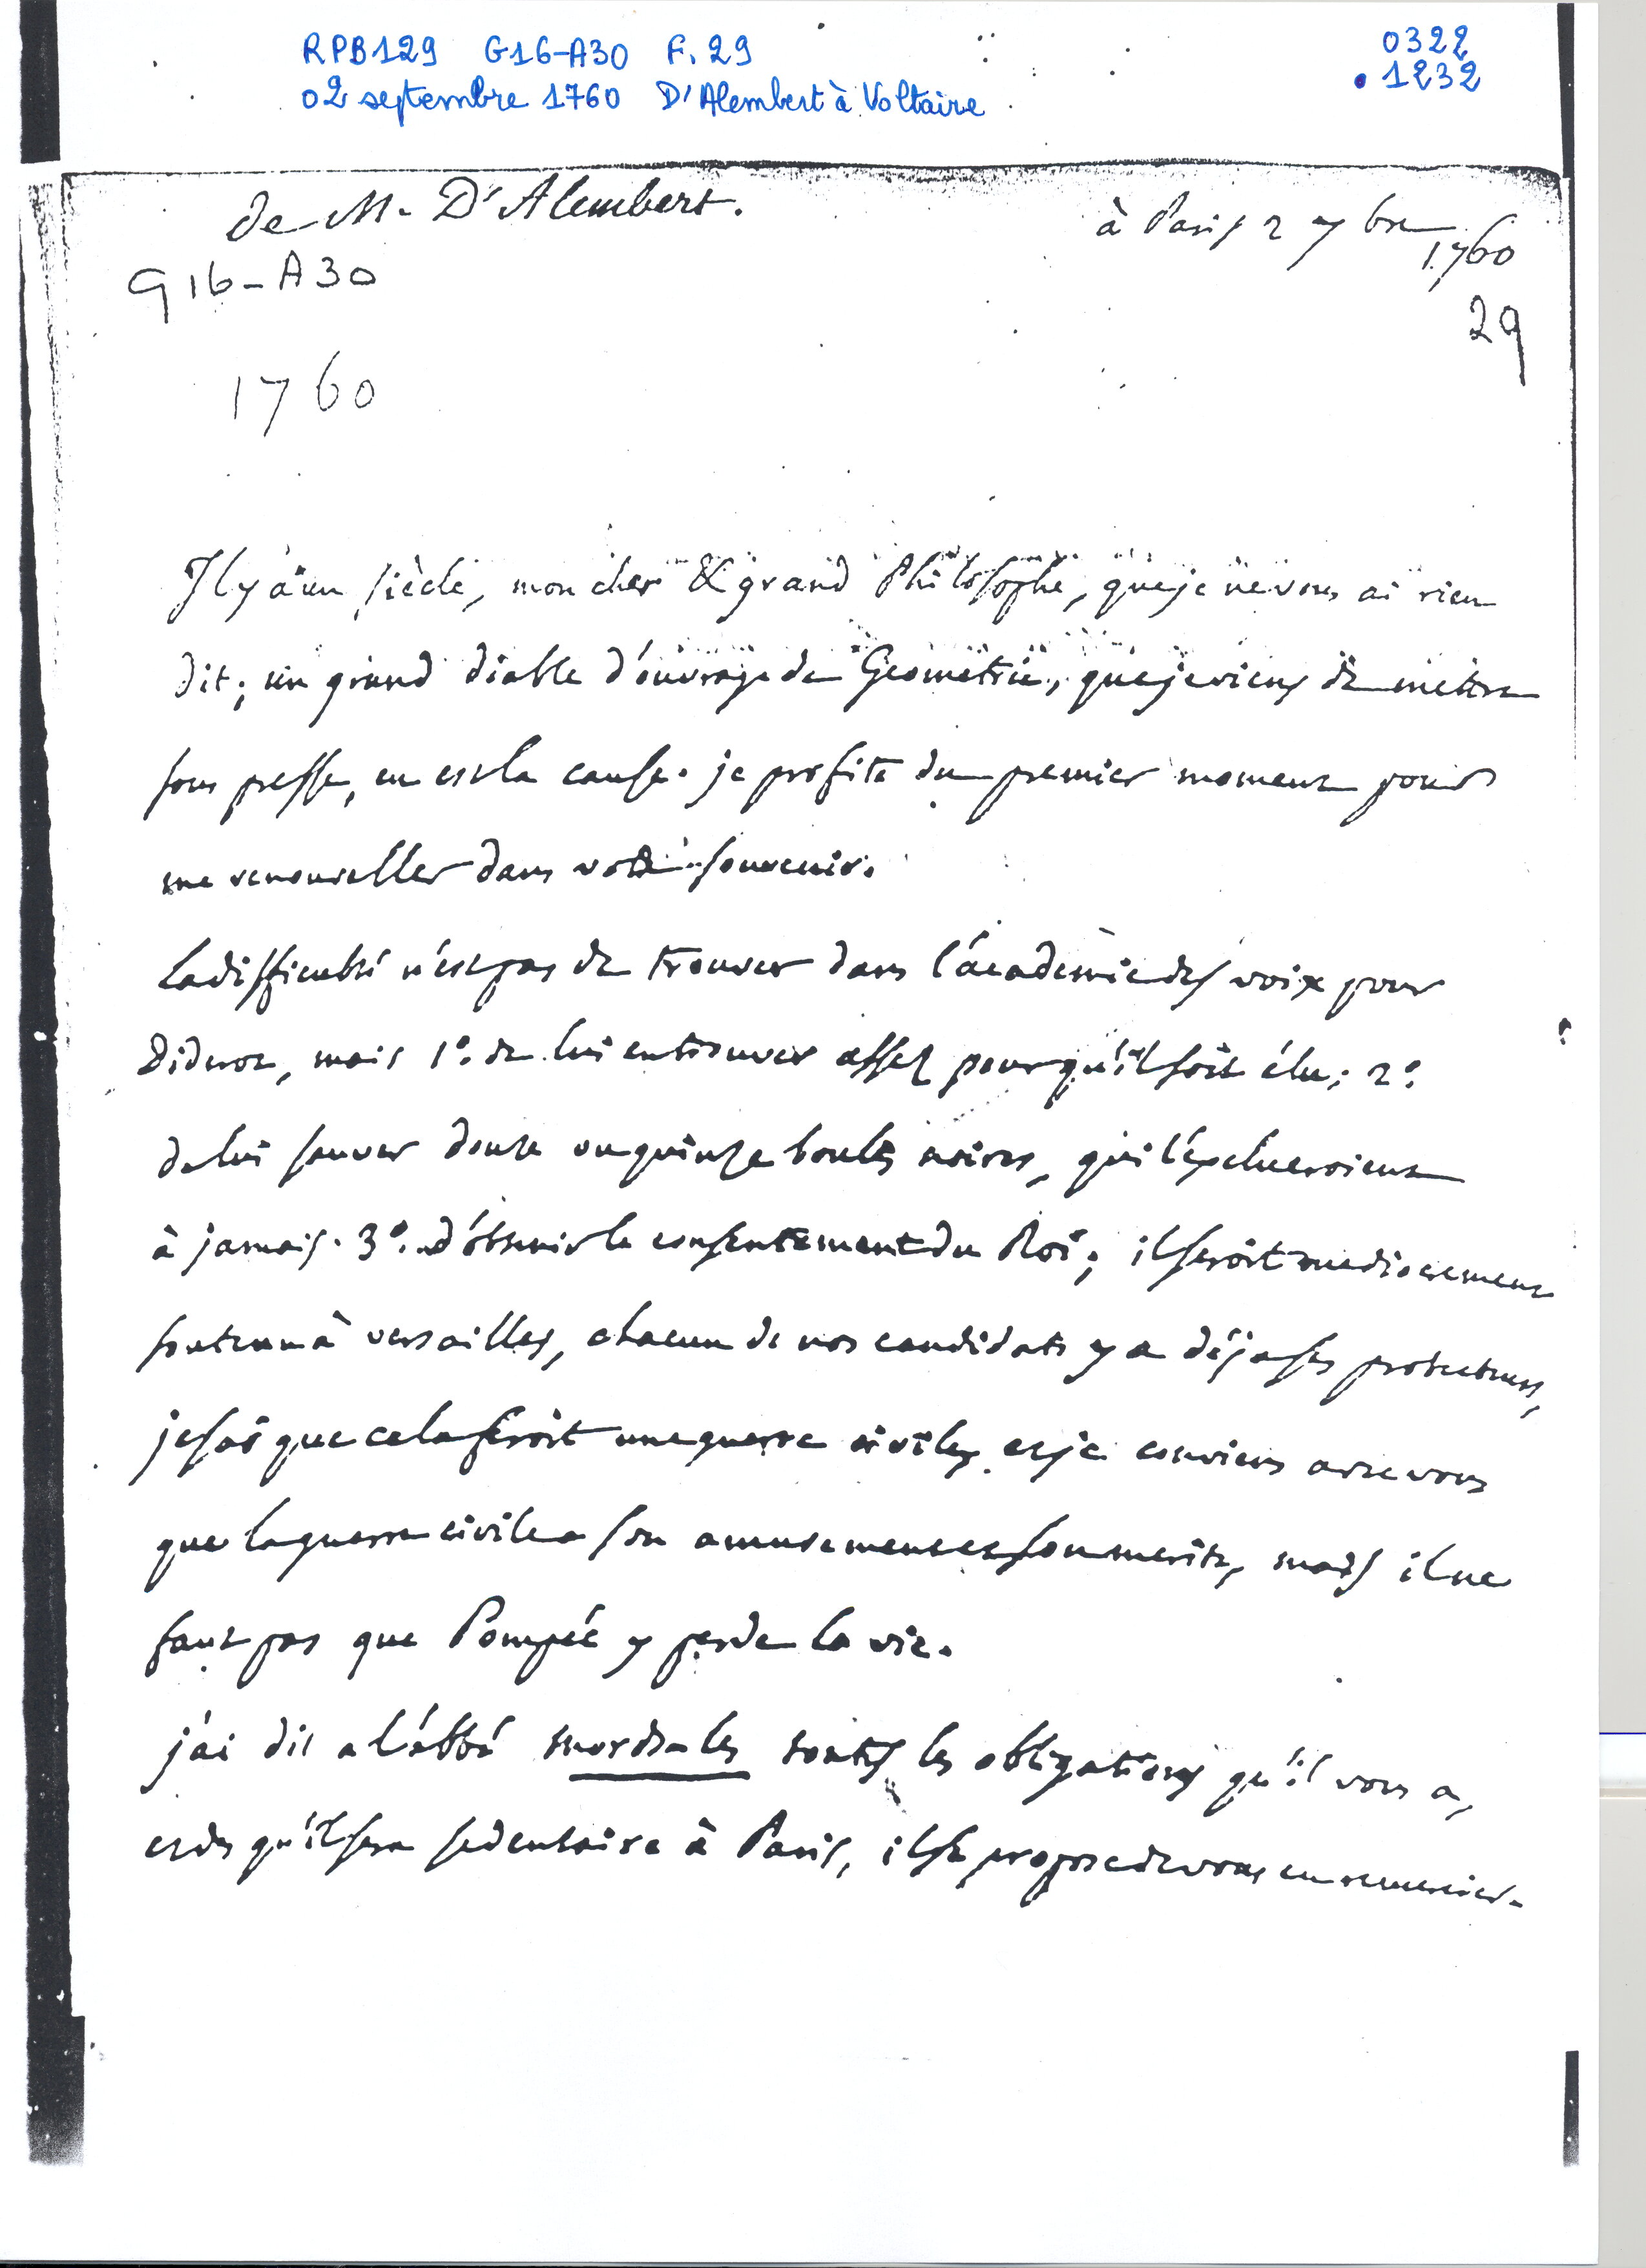 RPB129 G16-A30 F. 29
0322
02 septembre 1760 D'Alembert à Voltaire
1232
de M. D'Alembert.
à Paris 2 7bre
1760
G16-A30
29
1760
Il y a un siècle, mon cher & grand Philosophe, que je ne vous ai rien
dit; un grand diable d'ouvrage de Geometrie, que je viens de mettre
sous presse, en est la cause. je profite du premier moment pour
me renouveller dans votre souvenir.
La difficulté n'est pas de trouver dans l'académie des voix pour
Diderot, mais 1°. de lui en trouver assez pour qu'il soit élu; 2°.
de lui sauver douze ou quinze boules noires, qui l'exclueroient
à jamais. 3°. d'obtenir le consentement du Roi; il seroit mediocrement
soutenu à versailles, chacun de nos candidats y a déja ses protecteurs,
je sais que cela feroit une guerre civile, et je conviens avec vous
que la guerre civile a son amusement et son merite, mais il ne
faut pas que Pompée y perde la vie.
j'ai dit a l'abbé mords-les toutes les obligations qu'il vous a,
et des qu'il sera sedentaire à Paris, il se propose de vous en remercier.